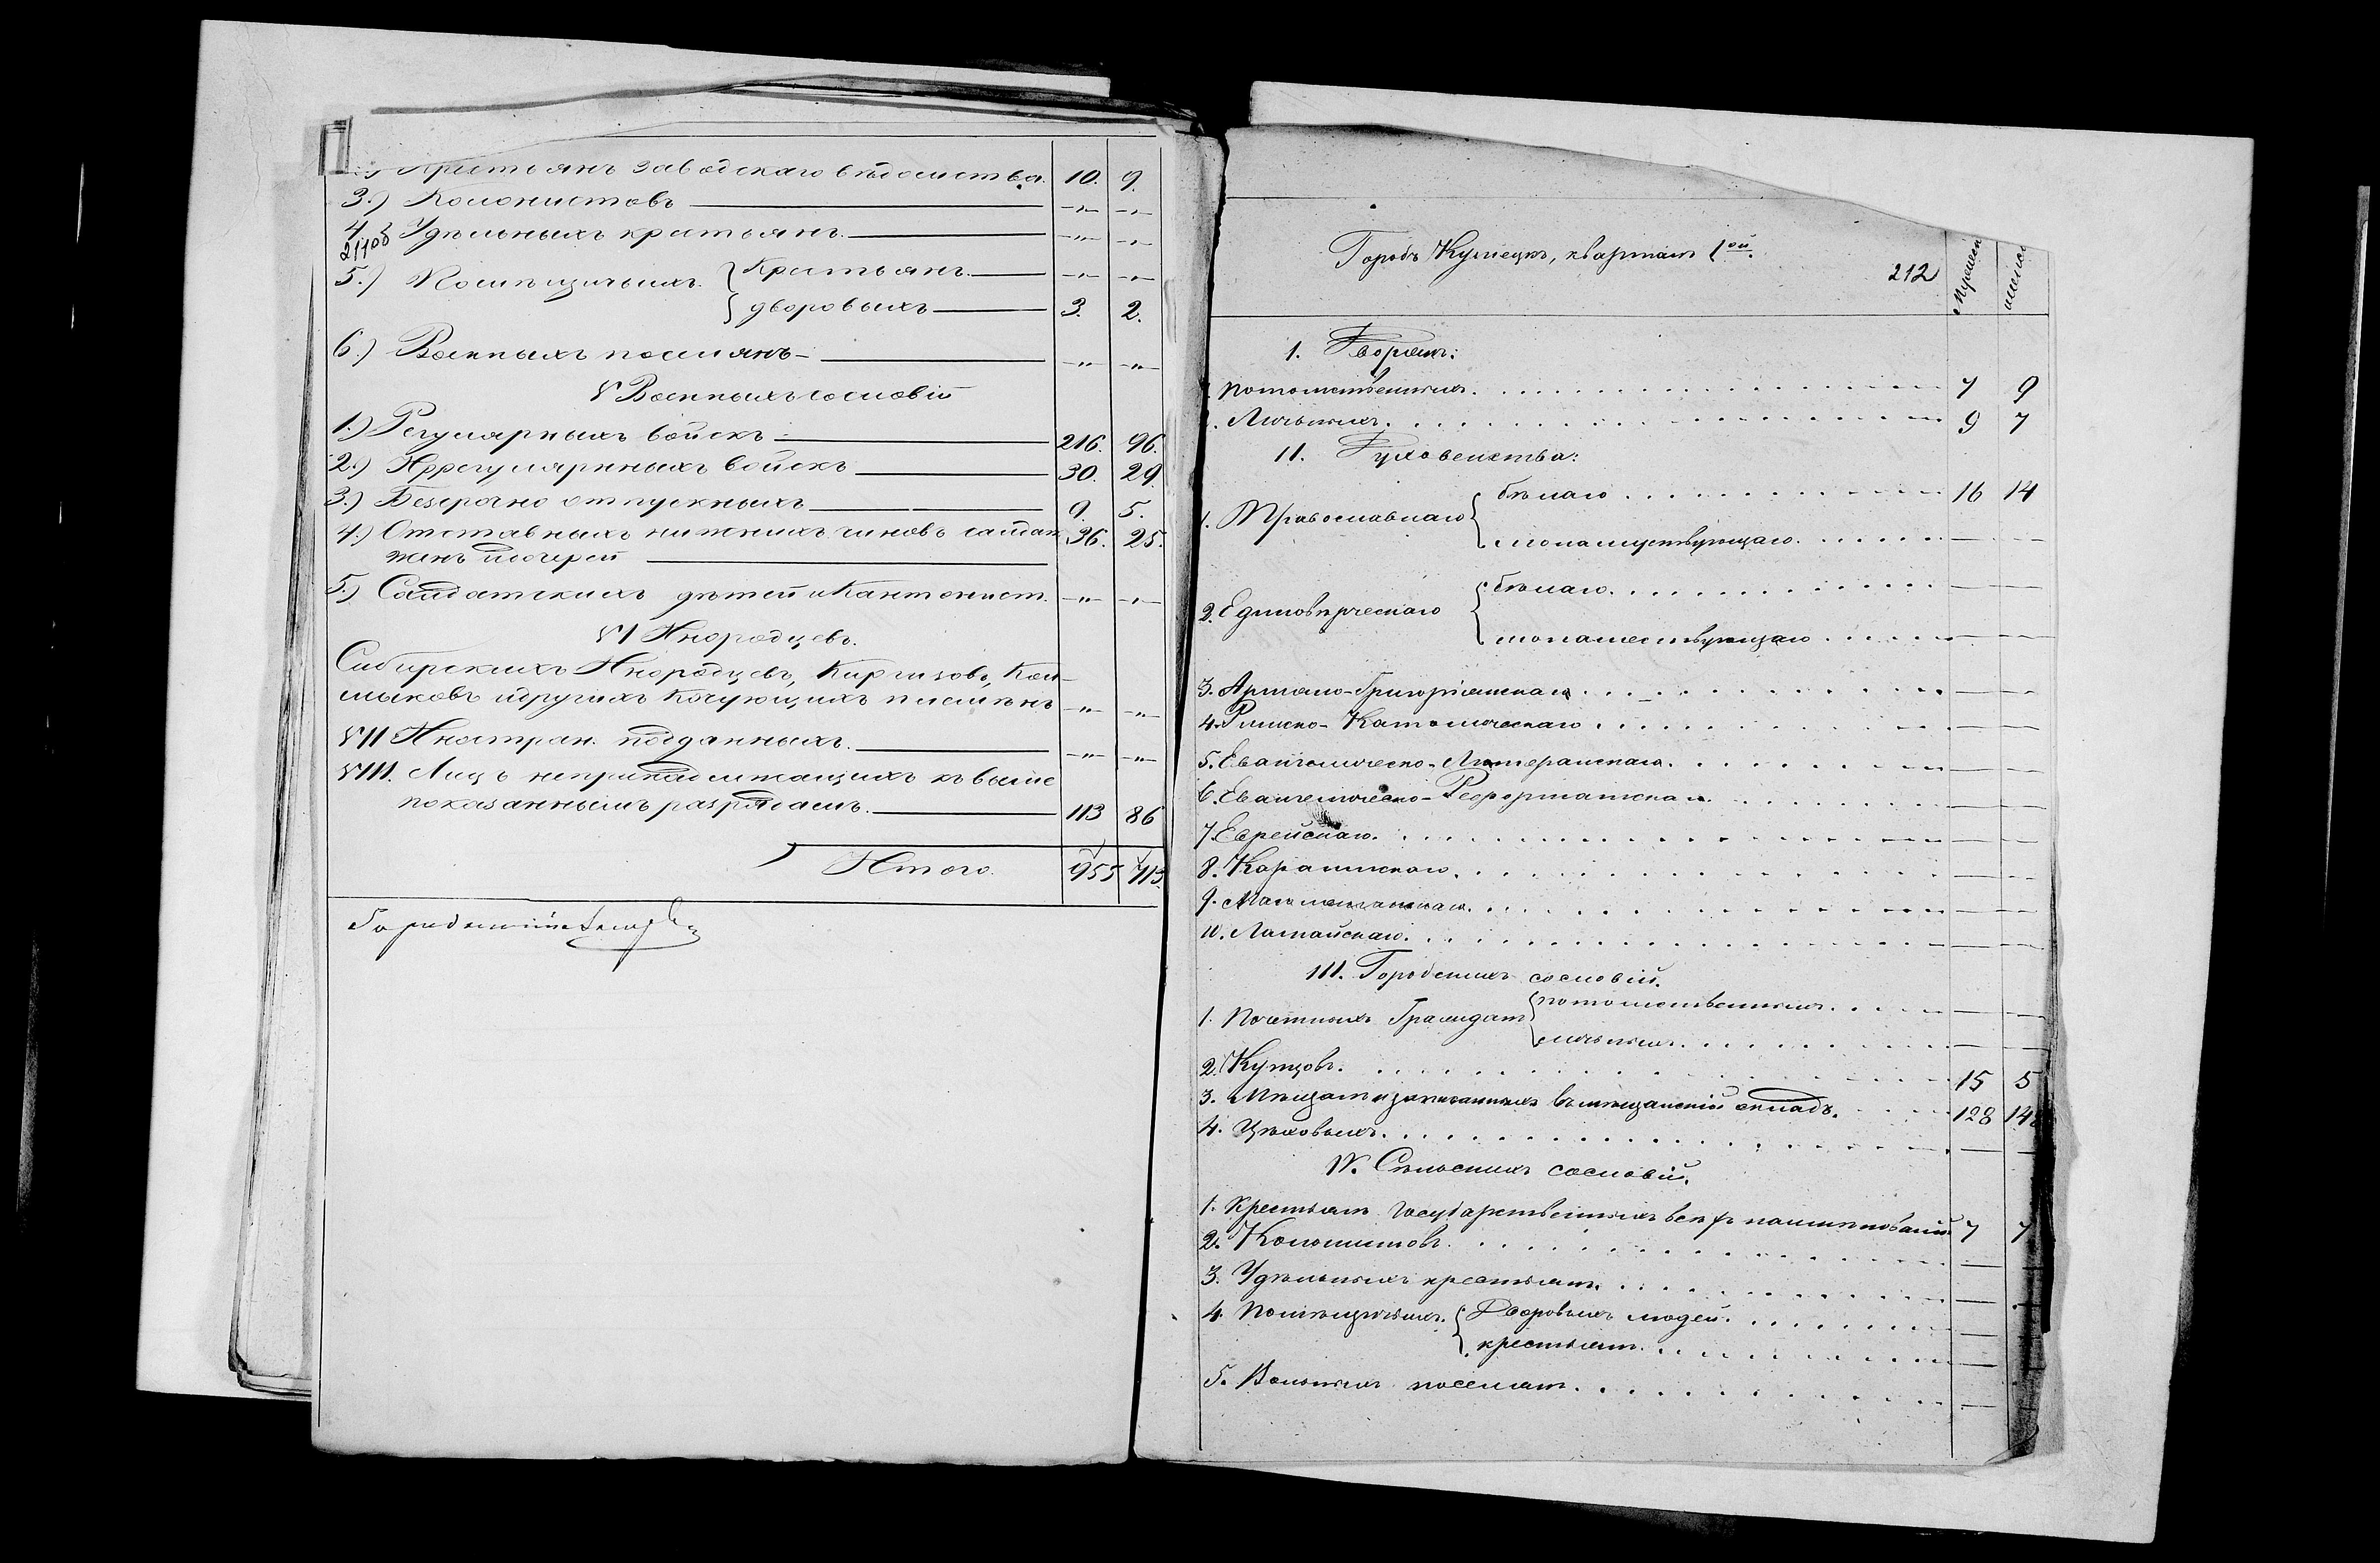 Крестьянъ заводскаго вѣдомства. 10. 9.
3.) Колонистовъ — „ — „
4.) Удѣльныхъ крестьянъ. — „ — „
211об
5.) Помѣщичьихъ { Крестьянъ. — „ — „
{ дворовыхъ 3. 2.
6.) Военныхъ поселянъ — „ — „
V Военныхъ сословій
1.) Регулярныхъ войскъ 216. 96.
2.) Иррегулярныхъ войскъ 30. 29.
3.) Безсрочно отпускныхъ 9. 5.
4.) Отставныхъ нижнихъ чиновъ солдат. 36. 25.
женъ и дочерей
5.) Солдатскихъ дѣтей и Кантонист. — „ — „
VI Инородцевъ.
Сибирскихъ Инородцевъ, Киргизовъ, Кал-
мыковъ и другихъ кочующихъ племенъ — „ — „
VII Иностран. подданныхъ. — „ — „
VIII. Лицъ непринадлежащихъ къ выше
показаннымъ разрядамъ. 113 86
Итого 955 713.
Городничій
Городъ Кузнецкъ, кварталъ 1ой.
212
1. Дворянъ:
потомственныхъ. 7 9
Личныхъ. 9 7
11. Духовенства:
1. Православнаго { бѣлаго 16 14
{ монашествующаго. — —
2. Единовѣрческаго { бѣлаго. — —
{ монашествующаго — —
3. Армяно-Григоріанскаго — —
4. Римско-Католическаго — —
5. Евангелическо-Лютеранскаго. — —
6. Евангелическо-Реформатскаго — —
7. Еврейскаго. — —
8. Караимскаго. — —
9. Магометанскаго. — —
10. Ламайскаго. — —
111. Городскихъ сословій.
1. Почетныхъ Гражданъ { потомственныхъ. — —
{ личныхъ. — —
2. Купцовъ. 15 5
3. Мѣщанъ и записанныхъ въ мѣщанскій окладъ. 128 14
4. Цѣховыхъ. — —
IV. Сельскихъ сословій.
1. Крестьянъ Государственныхъ всѣхъ наименованій 7 7
2. Колонистовъ. —
3. Удѣльныхъ крестьянъ. — —
4. Помѣщичьихъ. { Дворовыхъ людей. —
{ крестьянъ. —
5. Военныхъ поселянъ. — —